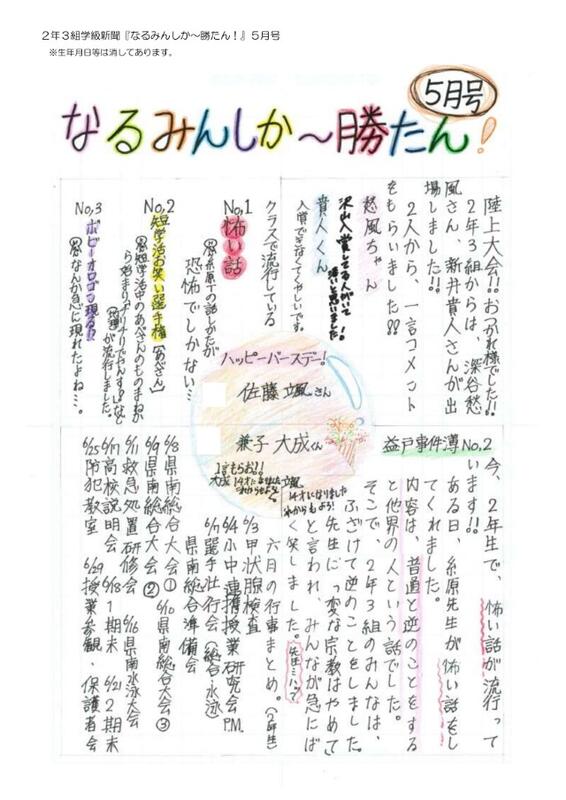 2年3組学級新聞『なるみんしか～勝たん！』5月号
※生年月日等は消してあります。
5月号
なるみんしか～勝たん！
陸上大会!!おつかれ様でした!!
2年3組からは、深谷愁
風さん、新井貴人さんが出
場しました!!
2人から、一言コメント
をもらいました!!
愁風ちゃん
沢山入賞してる人がいて
凄いと思いました！
貴人くん
入賞できなくてくやしいです。
クラスで流行している
No,1
怖い話
糸原Tの話しかたが
恐怖でしかない…
No,2
短学活お笑い選手権
短学活中のあべさんのものまねか
ら始まり
が流行しました。
No,3
ボビーオロゴン現る!!
なんか急に現れたよね…。
ハッピーバースデー！
佐藤 立風さん
兼子 大成くん
1言もらお!!
14才になりました
益戸事件簿No,2
今、2年生で、怖い話が流行って
います!!
ある日、糸原先生が怖い話をし
てくれました。
内容は、普通と逆のことをする
と他界の人という話でした。
そこで、2年3組のみんなは、
ふざけて逆のことをしました。
先生に「変な宗教はやめて」
と言われ、みんなが急にば
く笑しました。
六月の行事まとめ。（2年生）
6/3 甲状腺検査
6/4 小中連携授業研究会P.M.
6/7 選手壮行会（総合・水泳）
県南総合準備会
6/8 県南総合大会①
6/9 県南総合大会②
6/10 県南総合大会③
6/11 救急処置研修会
6/16 県南水泳大会
6/17 高校説明会
6/18 1期末
6/21 2期末
6/25 防犯教室
6/29 授業参観・保護者会